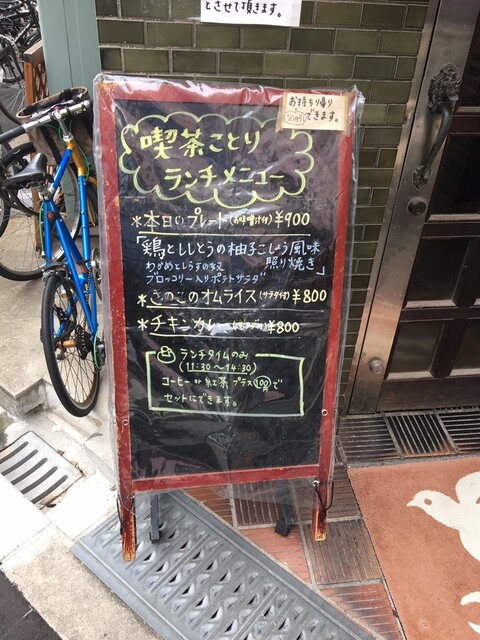 とさせて頂きます。
お持ち帰り
50円引できます。
喫茶ことり
ランチメニュー
*本日のプレート(お味噌汁付)¥900
「鶏とししとうの柚子こしょう風味
照り焼き」
わかめとしらすの
ブロッコリー入りポテトサラダ
*きのこのオムライス(サラダ付)¥800
*チキンカレー(サラダ付)¥800
ランチタイムのみ
(11:30〜14:30)
コーヒー or 紅茶 プラス100円で
セットにできます。